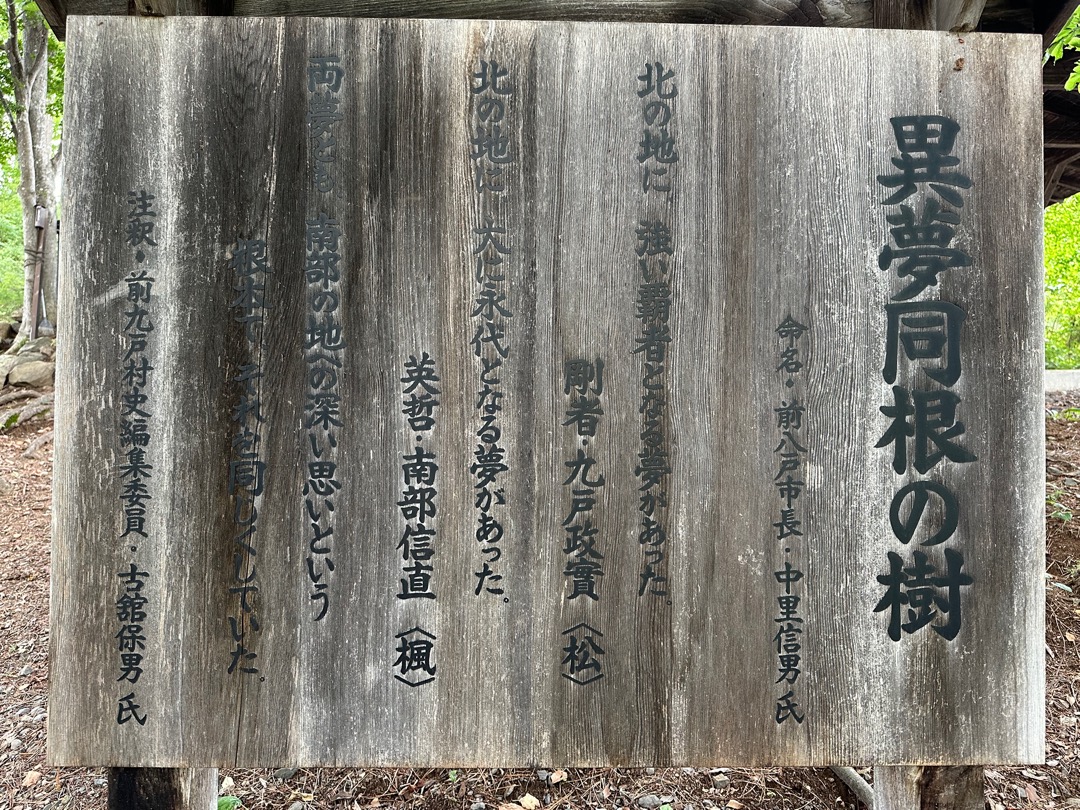 異夢同根の樹
命名・前八戸市長・中里信男 氏
北の地に、強い覇者となる夢があった。
剛者・九戸政實〈松〉
北の地に、大に永代となる夢があった。
英哲・南部信直〈楓〉
両夢とも、南部の地への深い思いという
根本で、それを同じくしていた。
注釈・前九戸村史編集委員・古舘保男 氏